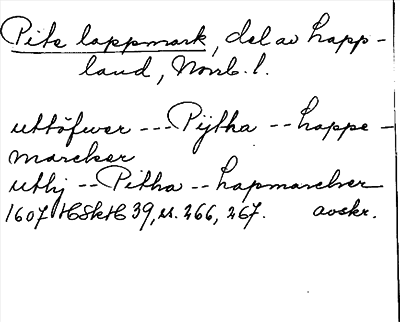 Pite lappmark, del av Lapp-
land, Norrb. l.
uttöfwer --- Pijtha -- Lappe-
marcker
uthj -- Pitha -- Lapmarcker
1607 HSkH 39, s. 266, 267. avskr.